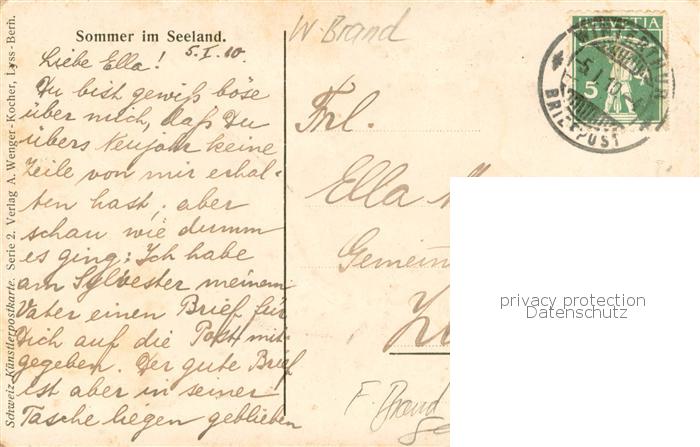 Schweiz-Künstlerpostkarte. Serie 2. Verlag A. Wenger-Kocher, Lyss-Bern.
Sommer im Seeland.
5. I. 10.
Liebe Ella!
Du bist gewiß böse
über mich, daß Du
übers Neujahr keine
Zeile von mir erhal-
ten hast; aber
schau wie dumm
es ging: Ich habe
am Sylvester meinem
Vater einen Brief für
Dich auf die Post mit-
gegeben. Der gute Brief
ist aber in seiner
Tasche liegen geblieben
W. Brand
HELVETIA
5
WINTERTHUR
5. I. 10
BRIEFPOST
Frl.
Ella
Gemein
F. Brand
privacy protection
Datenschutz